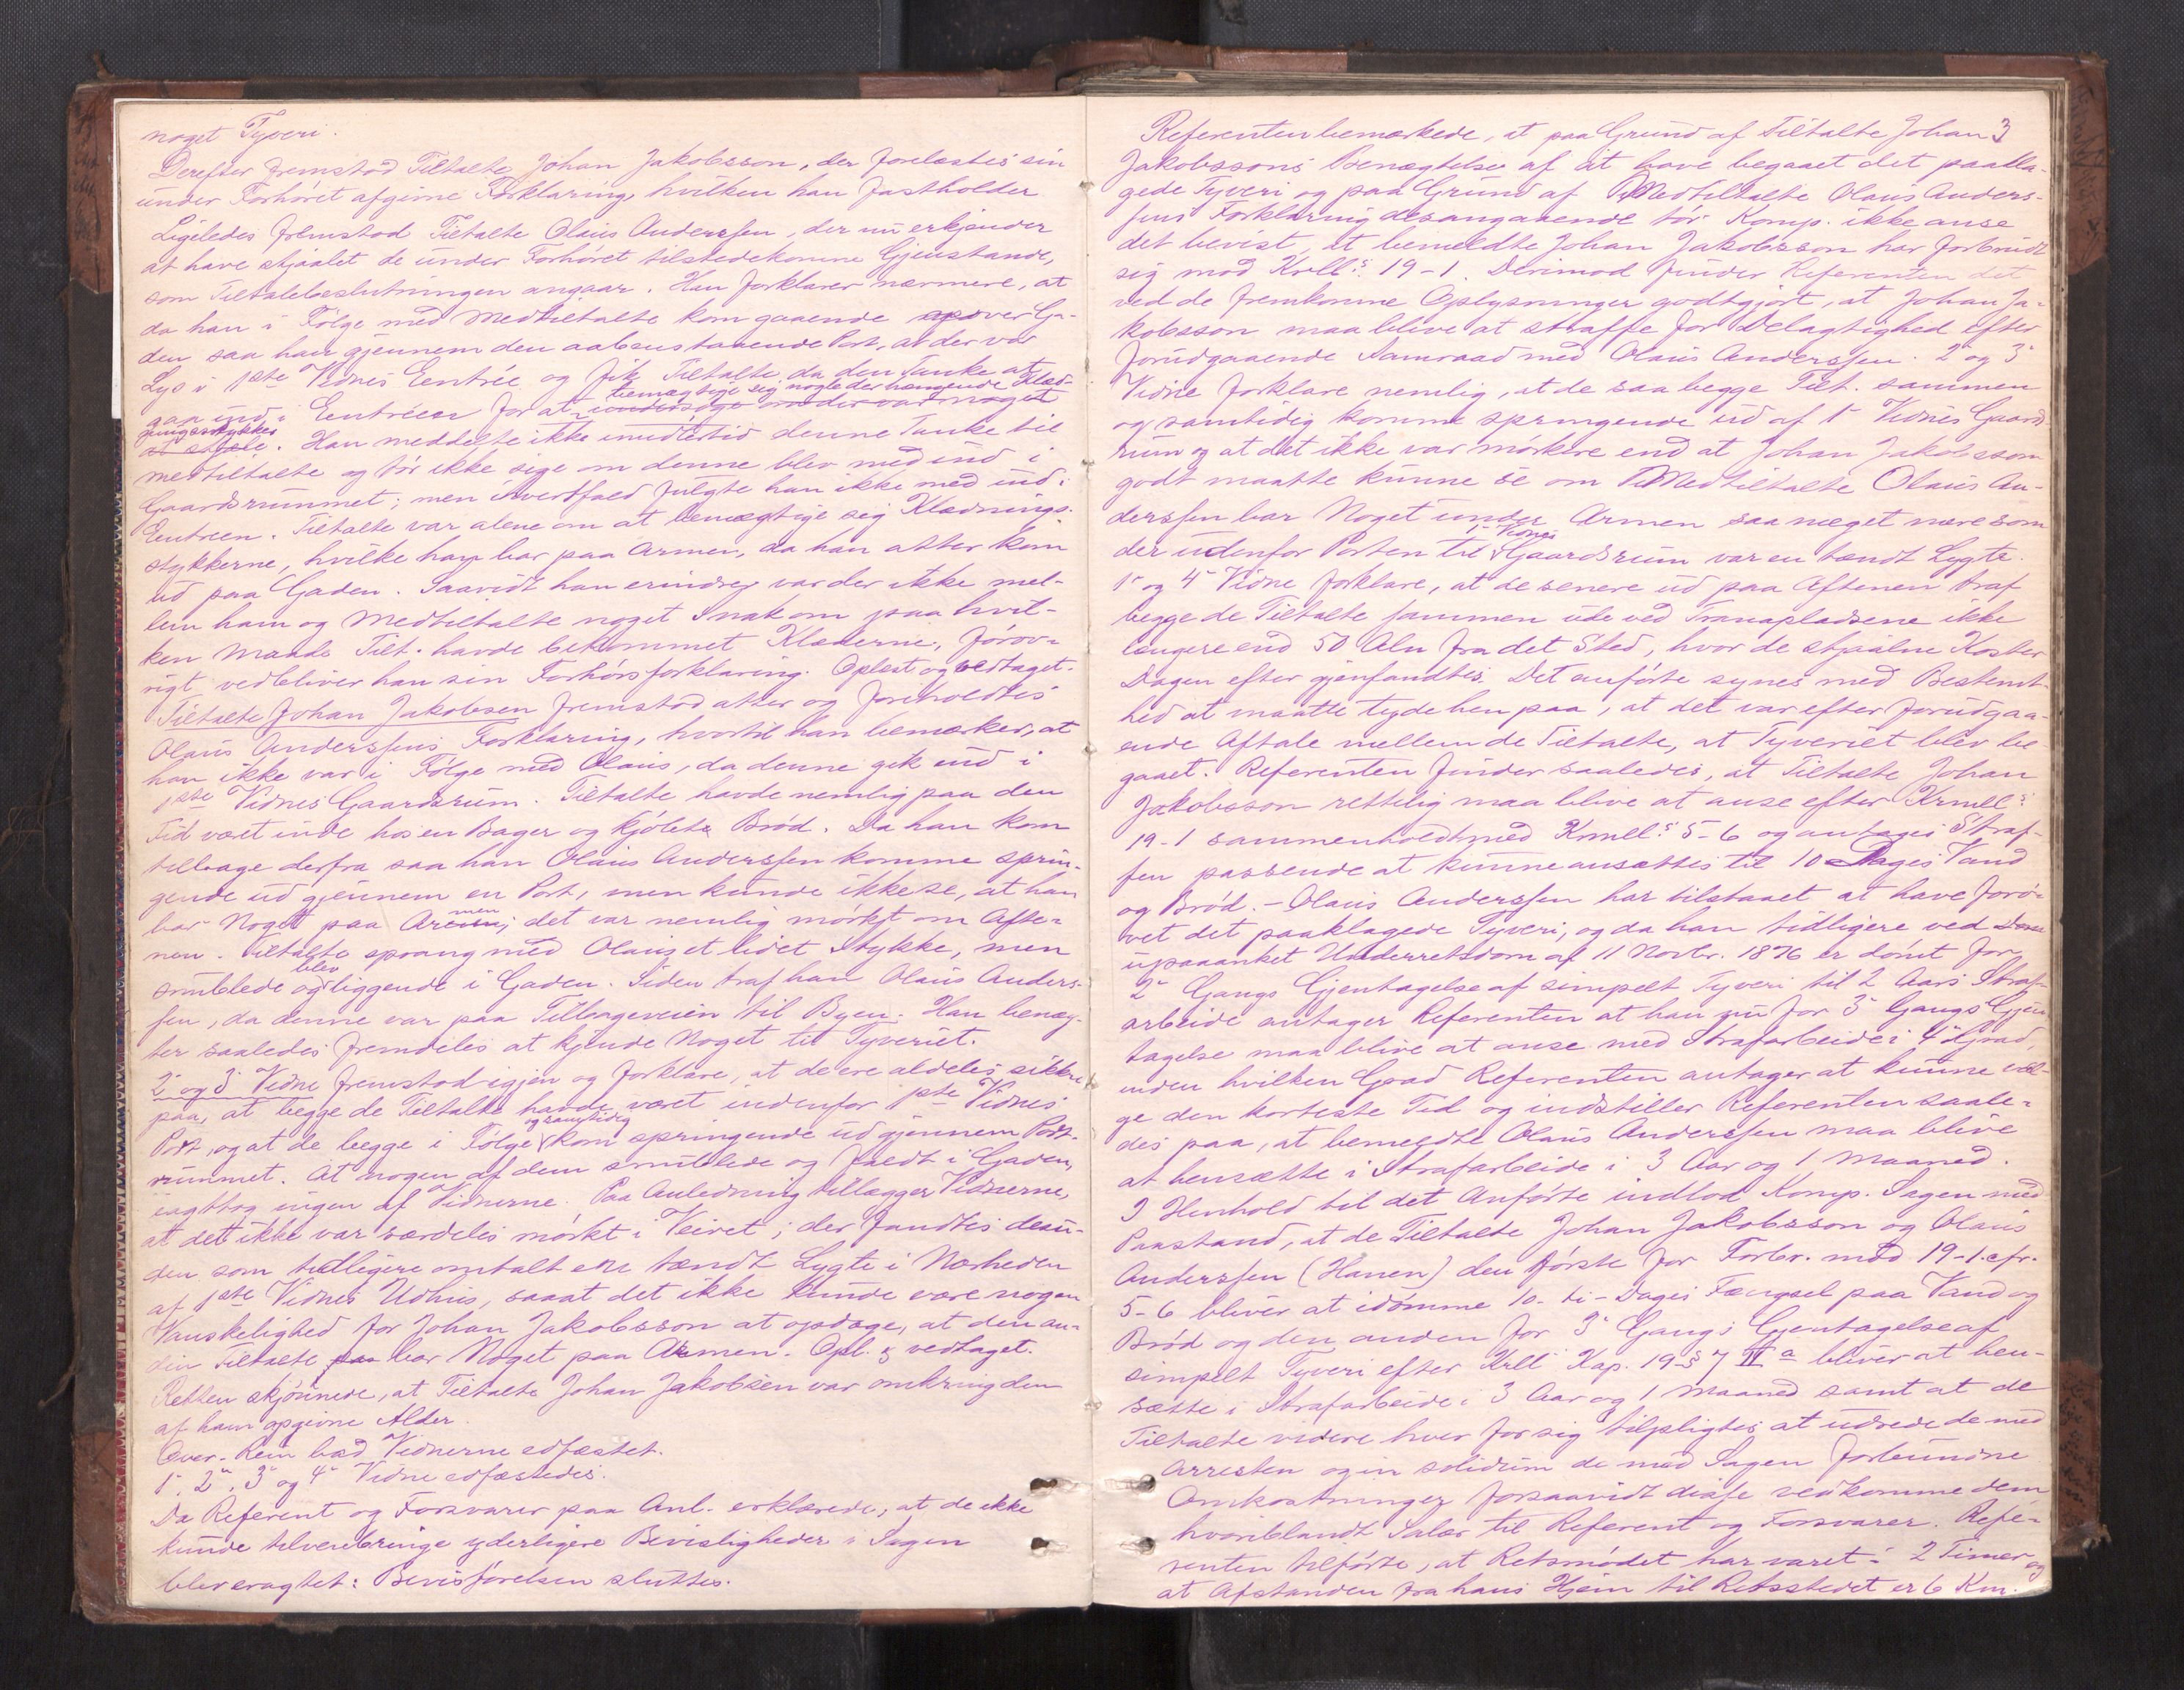 noget Tyveri.
Derefter fremstod Tiltalte Johan Jakobsson, der forelæstes sin
under Forhöret afgivne Forklaring, hvilken han fastholder
Ligeledes fremstod Tiltalte Olaus Anderssen, der nu erkjender
at have stjaalet de under Forhöret tilstedekomne Gjenstande,
som Tiltalebeslutningen angaar. Han forklarer nærmere, at
da han i Fölge med Medtiltalte kom gaaende opover Ga-
den saa han gjennem den aabenstaaende Port, at der var
Lys i 1ste Vidnes Eentrée og fik Tiltalte da den Tanke at
bemægtige sig nogle der hængende Klæd-
gaa ind i Eentréen for at undersöge om der var noget
ningsstykker
at stjæle. Han meddelte ikke imidlertid denne Tanke til
medtiltalte og tör ikke sige om denne blev med ind i
Gaardsrummet; men ihvertfald fulgte han ikke med ind i
Eentreen. Tiltalte var alene om at bemægtige sig Klædnings-
stykkerne, hvilke han bar paa Armen, da han atter kom
ud paa Gaden. Saavidt han erindrer var der ikke mel-
lem ham og Medtiltalte noget Snak om paa hvil-
ken Maade Tilt. havde bekommet Klæderne. Foröv-
rigt vedbliver han sin Forhörsforklaring. Oplæst og vedtaget.
Tiltalte Johan Jakobsen fremstod atter og foreholdtes
Olaus Anderssens Forklaring, hvortil han bemærker, at
han ikke var i Fölge med Olaus, da denne gik ind i
1ste Vidnes Gaardsrum. Tiltalte havde nemlig paa den
Tid været inde hos en Bager og kjöbte Bröd. Da han kom
tilbage derfra saa han Olaus Anderssen komme sprin-
gende ud gjennem en Port, men kunde ikke se, at han
men
bar Noget paa Armen; det var nemlig mörkt om Afte-
nen. Tiltalte sprang med Olaus et lidet Stykke, men
blev
snublede og liggende i Gaden. Siden traf han Olaus Anders-
sen, da denne var paa Tilbageveien til Byen. Han benæg-
ter saaledes fremdeles at kjende Noget til Tyveriet.
2. og 3. Vidne fremstod igjen og forklare, at de ere aldeles sikkre
paa, at begge de Tiltalte havde været indenfor 1ste Vidnes
og samtidig
Port, og at de begge i Fölge kom springende ud gjennem Port-
rummet. At nogen af dem snublede og faldt i Gaden,
iagttog ingen af Vidnerne. Paa Anledning tillægger Vidnerne,
at det ikke var særdeles mörkt i Veiret; der fandtes desu-
den som tidligere omtalt en tændt Lygte i Nærheden
af 1ste Vidnes Udhus, saaat det ikke kunde være nogen
Vanskelighed for Johan Jakobsson at opdage, at den an-
den Tiltalte paa bar Noget paa Armen. Opl. & vedtaget.
Retten skjönnede, at Tiltalte Johan Jakobsen var omkring den
af ham opgivne Alder.
bad Vidnerne edfæstet.
1. 2. 3. og 4. Vidne edfæstedes.
Da Referent og Forsvarer paa Anl. erklærede, at de ikke
kunde tilveiebringe yderligere Bevisligheder i Sagen
blev eragtet: Bevisförelsen sluttes.
3
Referenten bemærkede, at paa Grund af Tiltalte Johan
Jakobssons Benægtelse af at have begaaet det paakla-
gede Tyveri og paa Grund af Medtiltalte Olaus Anders-
sens Forklaring desangaaende tör Komp. ikke anse
det bevist, at bemeldte Johan Jakobsson har forbrudt
sig mod Krll.s 19-1. Derimod finder Referenten det
ved de fremkomne Oplysninger godtgjort, at Johan Ja-
kobsson maa blive at straffe for Delagtighed efter
forudgaaende Samraad med Olaus Anderssen. 2. og 3.
Vidne forklare nemlig, at de saa begge Tilt. sammen
og samtidig komme springende ud af 1. Vidnes Gaards-
rum og at det ikke var mörkere end at Johan Jakobsson
godt maatte kunne se om Medtiltalte Olaus An-
derssen bar Noget under Armen saa meget mere som
1. Vidnes
der udenfor Porten til Gaardsrum var en tændt Lygte.
1. og 4. Vidne forklare, at de senere ud paa Aftenen traf
begge de Tiltalte sammen ude ved Tranapladsene ikke
længere end 50 Alen fra det Sted, hvor de stjaalne Koster
Dagen efter gjenfandtes. Det anförte synes med Bestemt-
hed at maatte tyde hen paa, at det var efter forudgaa-
ende Aftale mellem de Tiltalte, at Tyveriet blev be-
gaaet. Referenten finder saaledes, at Tiltalte Johan
Jakobsson rettelig maa blive at anse efter Krmll.s
19-1 sammenholdt med Krmll.s 5-6 og antages Straf-
fen passende at kunne ansættes til 10 Dages Vand
og Bröd. - Olaus Anderssen har tilstaaet at have forö-
vet det paaklagede Tyveri, og da han tidligere ved
upaaanket Underretsdom af 11 Novbr. 1876 er dömt for
2. Gangs Gjentagelse af simpelt Tyveri til 2 Aars Straf-
arbeide antager Referenten at han nu for 3. Gangs Gjen-
tagelse maa blive at anse med Strafarbeide i 4. Grad,
inden hvilken Grad Referenten antager at kunne væl-
ge den korteste Tid og indstiller Referenten saale-
des paa, at bemeldte Olaus Anderssen maa blive
at hensætte i Strafarbeide i 3 Aar og 1 Maaned.
I Henhold til det Anförte indlod Komp. Sagen med
Paastand, at de Tiltalte Johan Jakobsson og Olaus
Anderssen (Hanen) den förste for Forbr. mod 19-1 cfr.
5-6 bliver at idömme 10- ti- Dages Fængsel paa Vand og
Bröd og den anden for 3. Gangs Gjentagelse af
simpelt Tyveri efter Krll Kap. 19 § 7 IV a bliver at hen-
sætte i Strafarbeide i 3 Aar og 1 Maaned samt at de
Tiltalte videre hver for sig tilpligtes at udrede de med
Arresten og in solidum de med Sagen forbundne
Omkostninger forsaavidt disse vedkomme dem
hvoriblandt Salær til Referent og Forsvarer. Refe-
renten tilförte, at Retsmödet har varet i 2 Timer og
at Afstanden fra hans Hjem til Retsstedet er 6 Km.